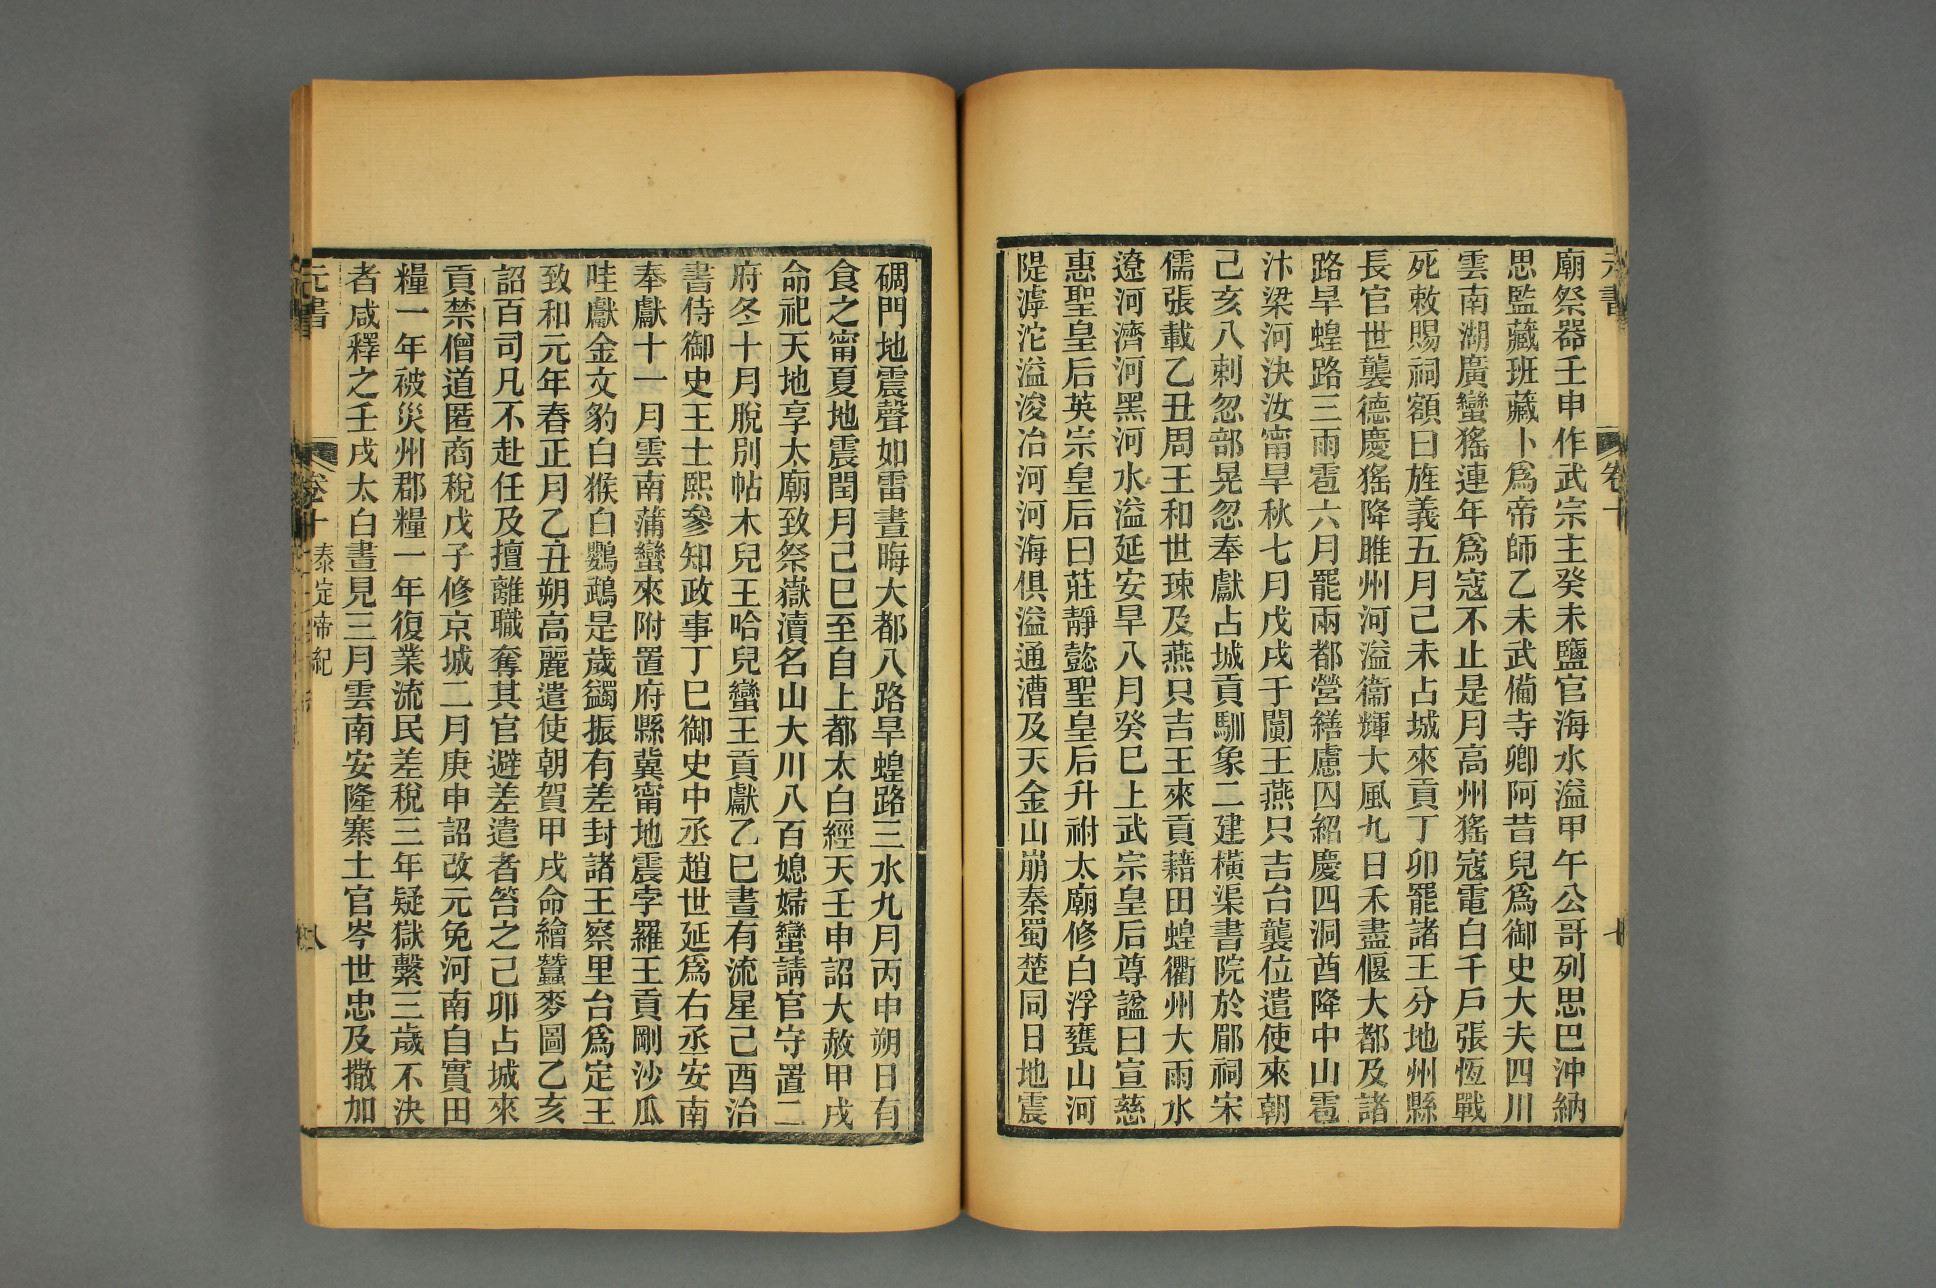 廟祭器壬申作武宗主癸未鹽官海水溢甲午公哥列思巴沖納
思監藏班藏卜爲帝師乙未武備寺卿阿昔兒爲御史大夫四川
雲南湖廣蠻猺連年爲寇不止是月高州猺寇電白千戶張恆戰
死敕賜祠額曰旌義五月己未占城來貢丁卯罷諸王分地州縣
長官世襲德慶猺降睢州河溢衞輝大風九日禾盡偃大都及諸
路旱蝗路三雨雹六月罷兩都營繕慮囚紹慶四洞酋降中山雹
汴梁河決汝甯旱秋七月戊戌于闐王燕只吉台襲位遣使來朝
己亥八剌忽部晃忽奉獻占城貢馴象二建橫渠書院於郿祠宋
儒張載乙丑周王和世㻋及燕只吉王來貢藉田蝗衢州大雨水
遼河濟河黑河水溢延安旱八月癸巳上武宗皇后尊謚曰宣慈
惠聖皇后英宗皇后曰莊靜懿聖皇后升祔太廟修白浮甕山河
隄滹沱溢浚冶河河海俱溢通漕及天全山崩秦蜀楚同日地震
碉門地震聲如雷晝晦大都八路旱蝗路三水九月丙申朔日有
食之甯夏地震閏月己巳至自上都太白經天壬申詔大赦甲戌
命祀天地享太廟致祭嶽瀆名山大川八百媳婦蠻請官守置二
府冬十月脫別帖木兒王哈兒蠻王貢獻乙巳晝有流星己酉治
書侍御史王士熙參知政事丁巳御史中丞趙世延爲右丞安南
奉獻十一月雲南蒲蠻來附置府縣冀甯地震孛羅王貢剛沙瓜
哇獻金文豹白猴白鸚鵡是歲蠲振有差封諸王察里台爲定王
致和元年春正月乙丑朔高麗遣使朝賀甲戌命繪蠶麥圖乙亥
詔百司凡不赴任及擅離職奪其官避差遣者笞之己卯占城來
貢禁僧道匿商稅戊子修京城二月庚申詔改元免河南自實田
糧一年被災州郡糧一年復業流民差稅三年疑獄繫三歲不決
者咸釋之壬戌太白晝見三月雲南安隆寨土官岑世忠及撒加
元書 卷十 泰定帝紀 八